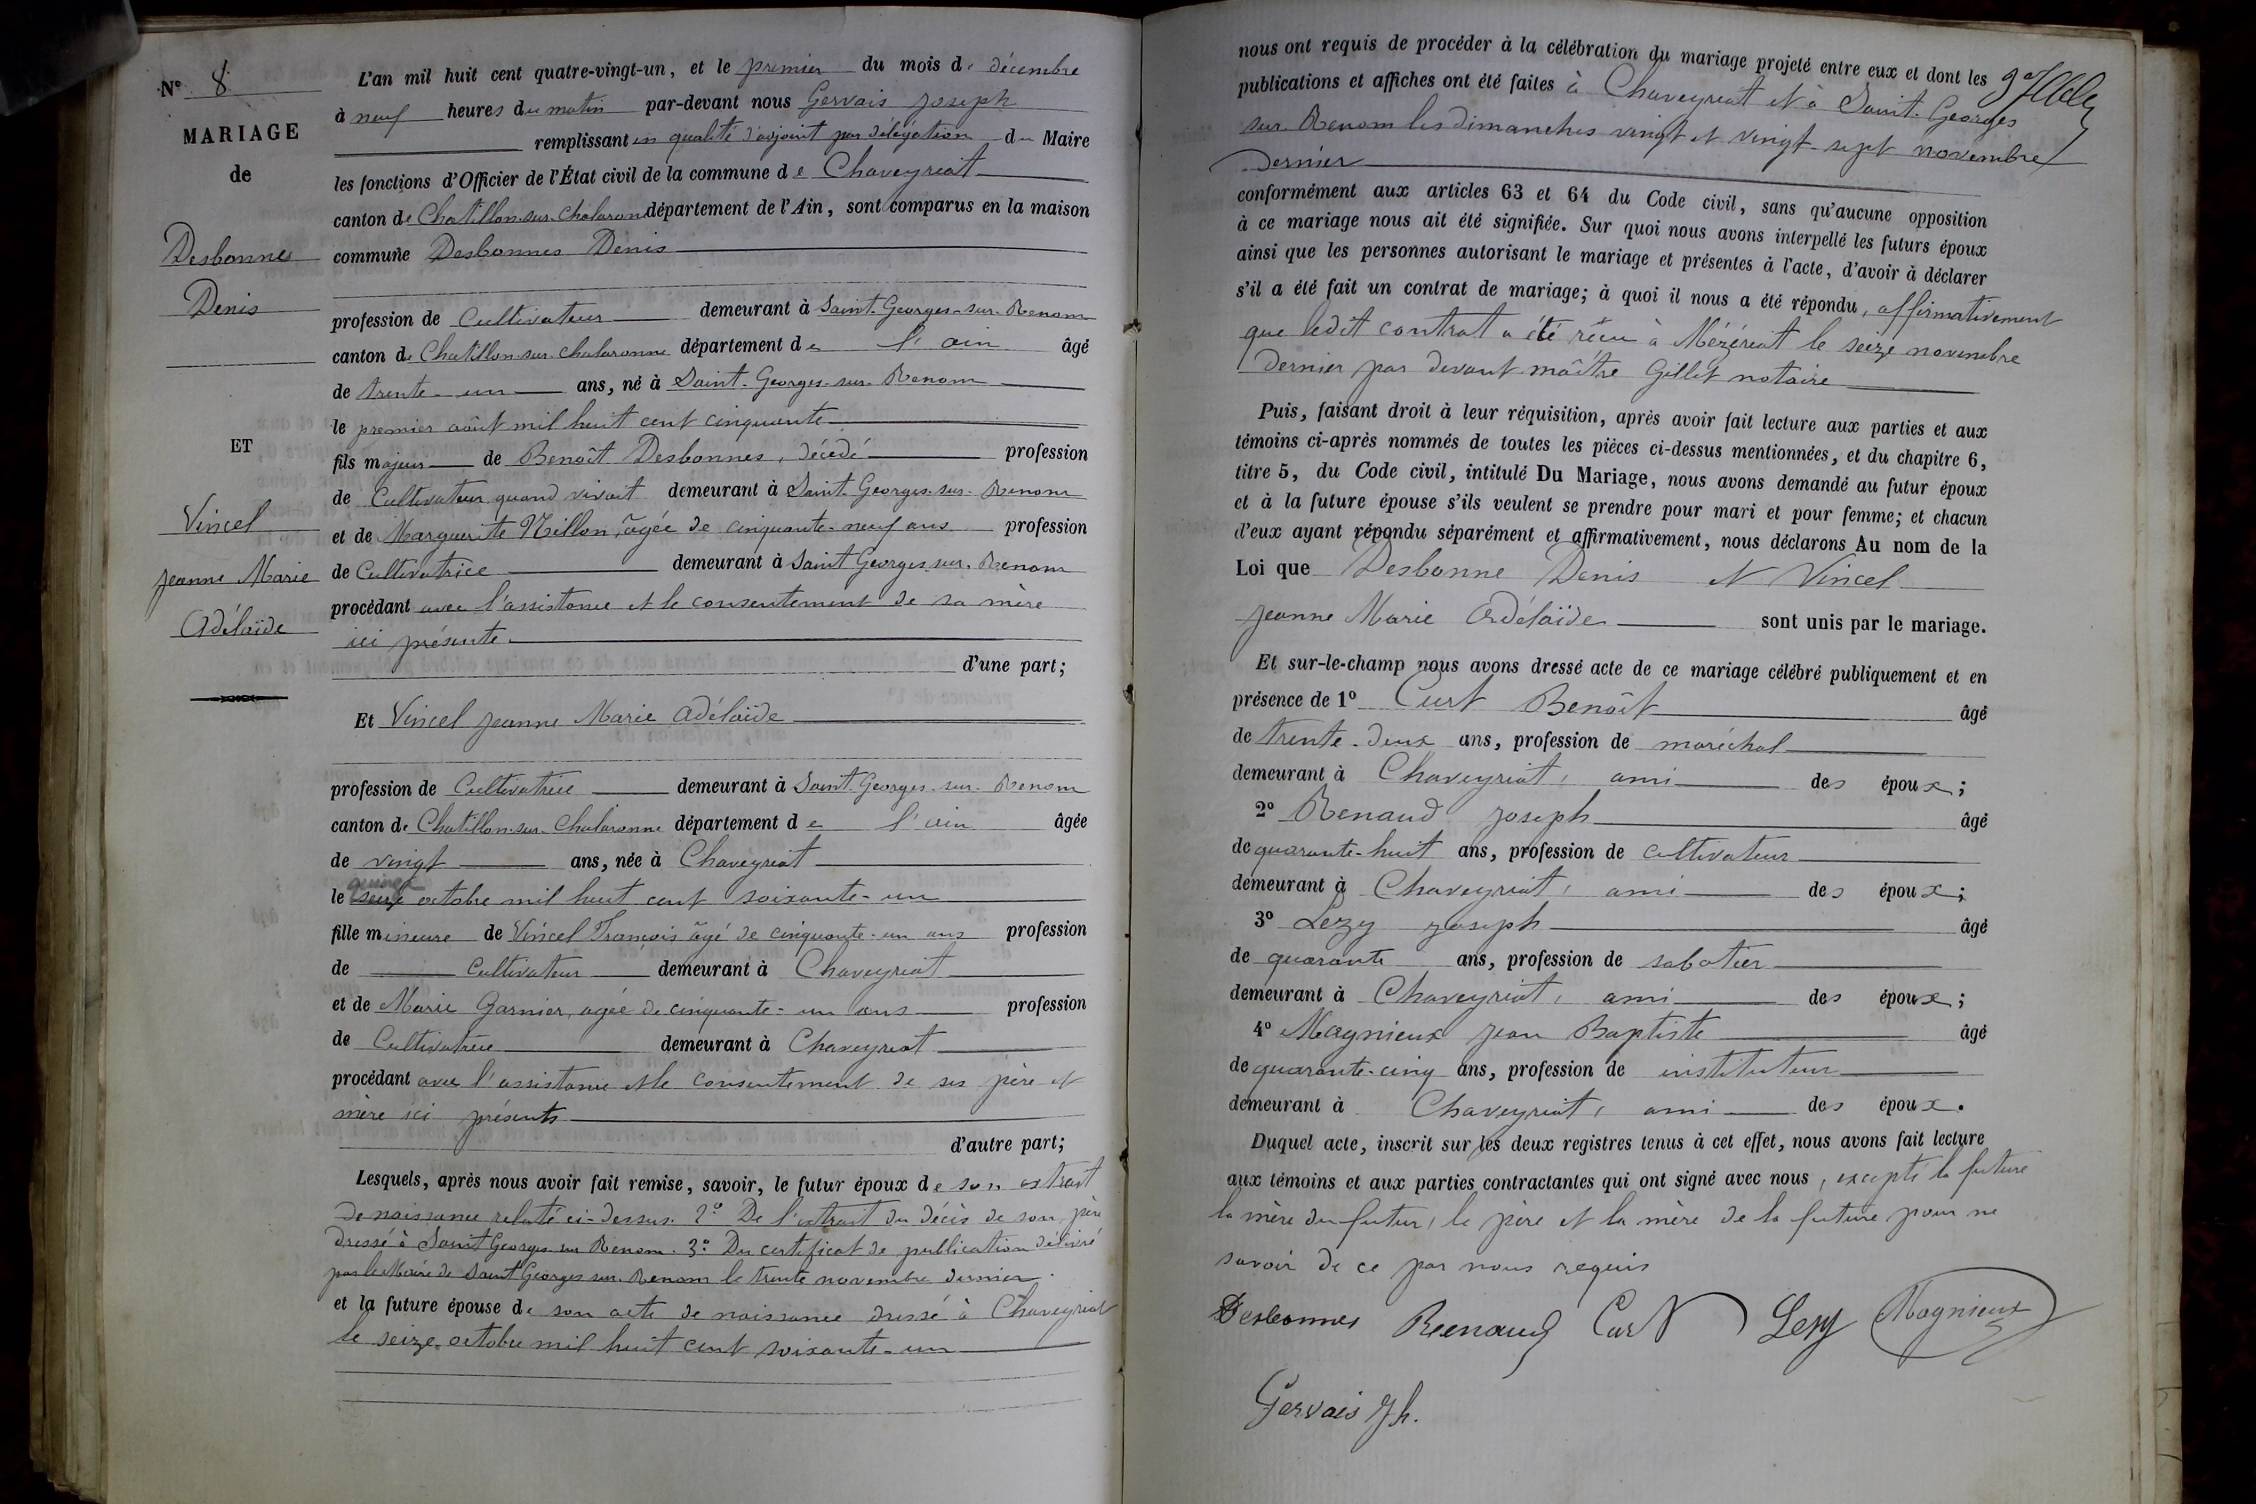 N° 8
MARIAGE
de
Desbonnes
Denis
ET
Vincel
Jeanne Marie
Adélaïde
L'an mil huit cent quatre-vingt-un, et le premier du mois de décembre
à neuf heures du matin par-devant nous Gervais Joseph
remplissant en qualité d'adjoint par délégation du Maire
les fonctions d'Officier de l'État civil de la commune de Chaveyriat
canton de Chatillon-sur-Chalaronne département de l'Ain, sont comparus en la maison
commune Desbonnes Denis
profession de Cultivateur demeurant à Saint-Georges-sur-Renom
canton de Chatillon-sur-Chalaronne département de l'ain âgé
de trente-un ans, né à Saint-Georges-sur-Renom
le premier août mil huit cent cinquante
fils majeur de Benoît Desbonnes, décédé profession
de Cultivateur quand vivait demeurant à Saint-Georges-sur-Renom
et de Marguerite Nillon, âgée de cinquante-neuf ans profession
de Cultivatrice demeurant à Saint Georges-sur-Renom
procédant avec l'assistance et le consentement de sa mère
ici présente
d'une part;
Et Vincel Jeanne Marie Adélaïde
profession de Cultivatrice demeurant à Saint-Georges-sur-Renom
canton de Chatillon-sur-Chalaronne département de l'ain âgée
de vingt ans, née à Chaveyriat
quinze
le seize octobre mil huit cent soixante-un
fille mineure de Vincel François âgé de cinquante-un ans profession
de Cultivateur demeurant à Chaveyriat
et de Marie Garnier, agée de cinquante-un ans profession
de Cultivatrice demeurant à Chaveyriat
procédant avec l'assistance et le consentement de ses père et
mère ici présents
d'autre part;
Lesquels, après nous avoir fait remise, savoir, le futur époux de son extrait
de naissance relaté ci-dessus. 2° De l'extrait du décès de son père
dressé à Saint Georges sur Renom. 3° Du certificat de publication délivré
par le Maire de Saint Georges sur Renom le trente novembre dernier.
et la future épouse de son acte de naissance dressé à Chaveyriat
le seize octobre mil huit cent soixante-un
nous ont requis de procéder à la célébration du mariage projeté entre eux et dont les
publications et affiches ont été faites à Chaveyriat et à Saint-Georges
sur-Renom les dimanches vingt et vingt-sept novembre
dernier
conformément aux articles 63 et 64 du Code civil, sans qu'aucune opposition
à ce mariage nous ait été signifiée. Sur quoi nous avons interpellé les futurs époux
ainsi que les personnes autorisant le mariage et présentes à l'acte, d'avoir à déclarer
s'il a été fait un contrat de mariage; à quoi il nous a été répondu, affirmativement
que ledit contrat a été réçu à Mézériat le seize novembre
dernier par devant maître Gillet notaire
Puis, faisant droit à leur réquisition, après avoir fait lecture aux parties et aux
témoins ci-après nommés de toutes les pièces ci-dessus mentionnées, et du chapitre 6,
titre 5, du Code civil, intitulé Du Mariage, nous avons demandé au futur époux
et à la future épouse s'ils veulent se prendre pour mari et pour femme; et chacun
d'eux ayant répondu séparément et affirmativement, nous déclarons Au nom de la
Loi que Desbonne Denis et Vincel
Jeanne Marie Adélaïde sont unis par le mariage.
Et sur-le-champ nous avons dressé acte de ce mariage célébré publiquement et en
présence de 1° Curt Benoît âgé
de trente-deux ans, profession de maréchal
demeurant à Chaveyriat, ami des époux;
2° Renaud Joseph âgé
de quarante-huit ans, profession de cultivateur
demeurant à Chaveyriat, ami des époux;
3° Lezy Joseph âgé
de quarante ans, profession de sabotier
demeurant à Chaveyriat, ami des époux;
4° Magnieux Jean Baptiste âgé
de quarante-cinq ans, profession de instituteur
demeurant à Chaveyriat, ami des époux.
Duquel acte, inscrit sur les deux registres tenus à cet effet, nous avons fait lecture
aux témoins et aux parties contractantes qui ont signé avec nous, excepté la future
la mère du futur, le père et la mère de la future pour ne
savoir de ce par nous requis
Desbonnes Reenaud Curt Lezy Magnieux
Gervais Jh.